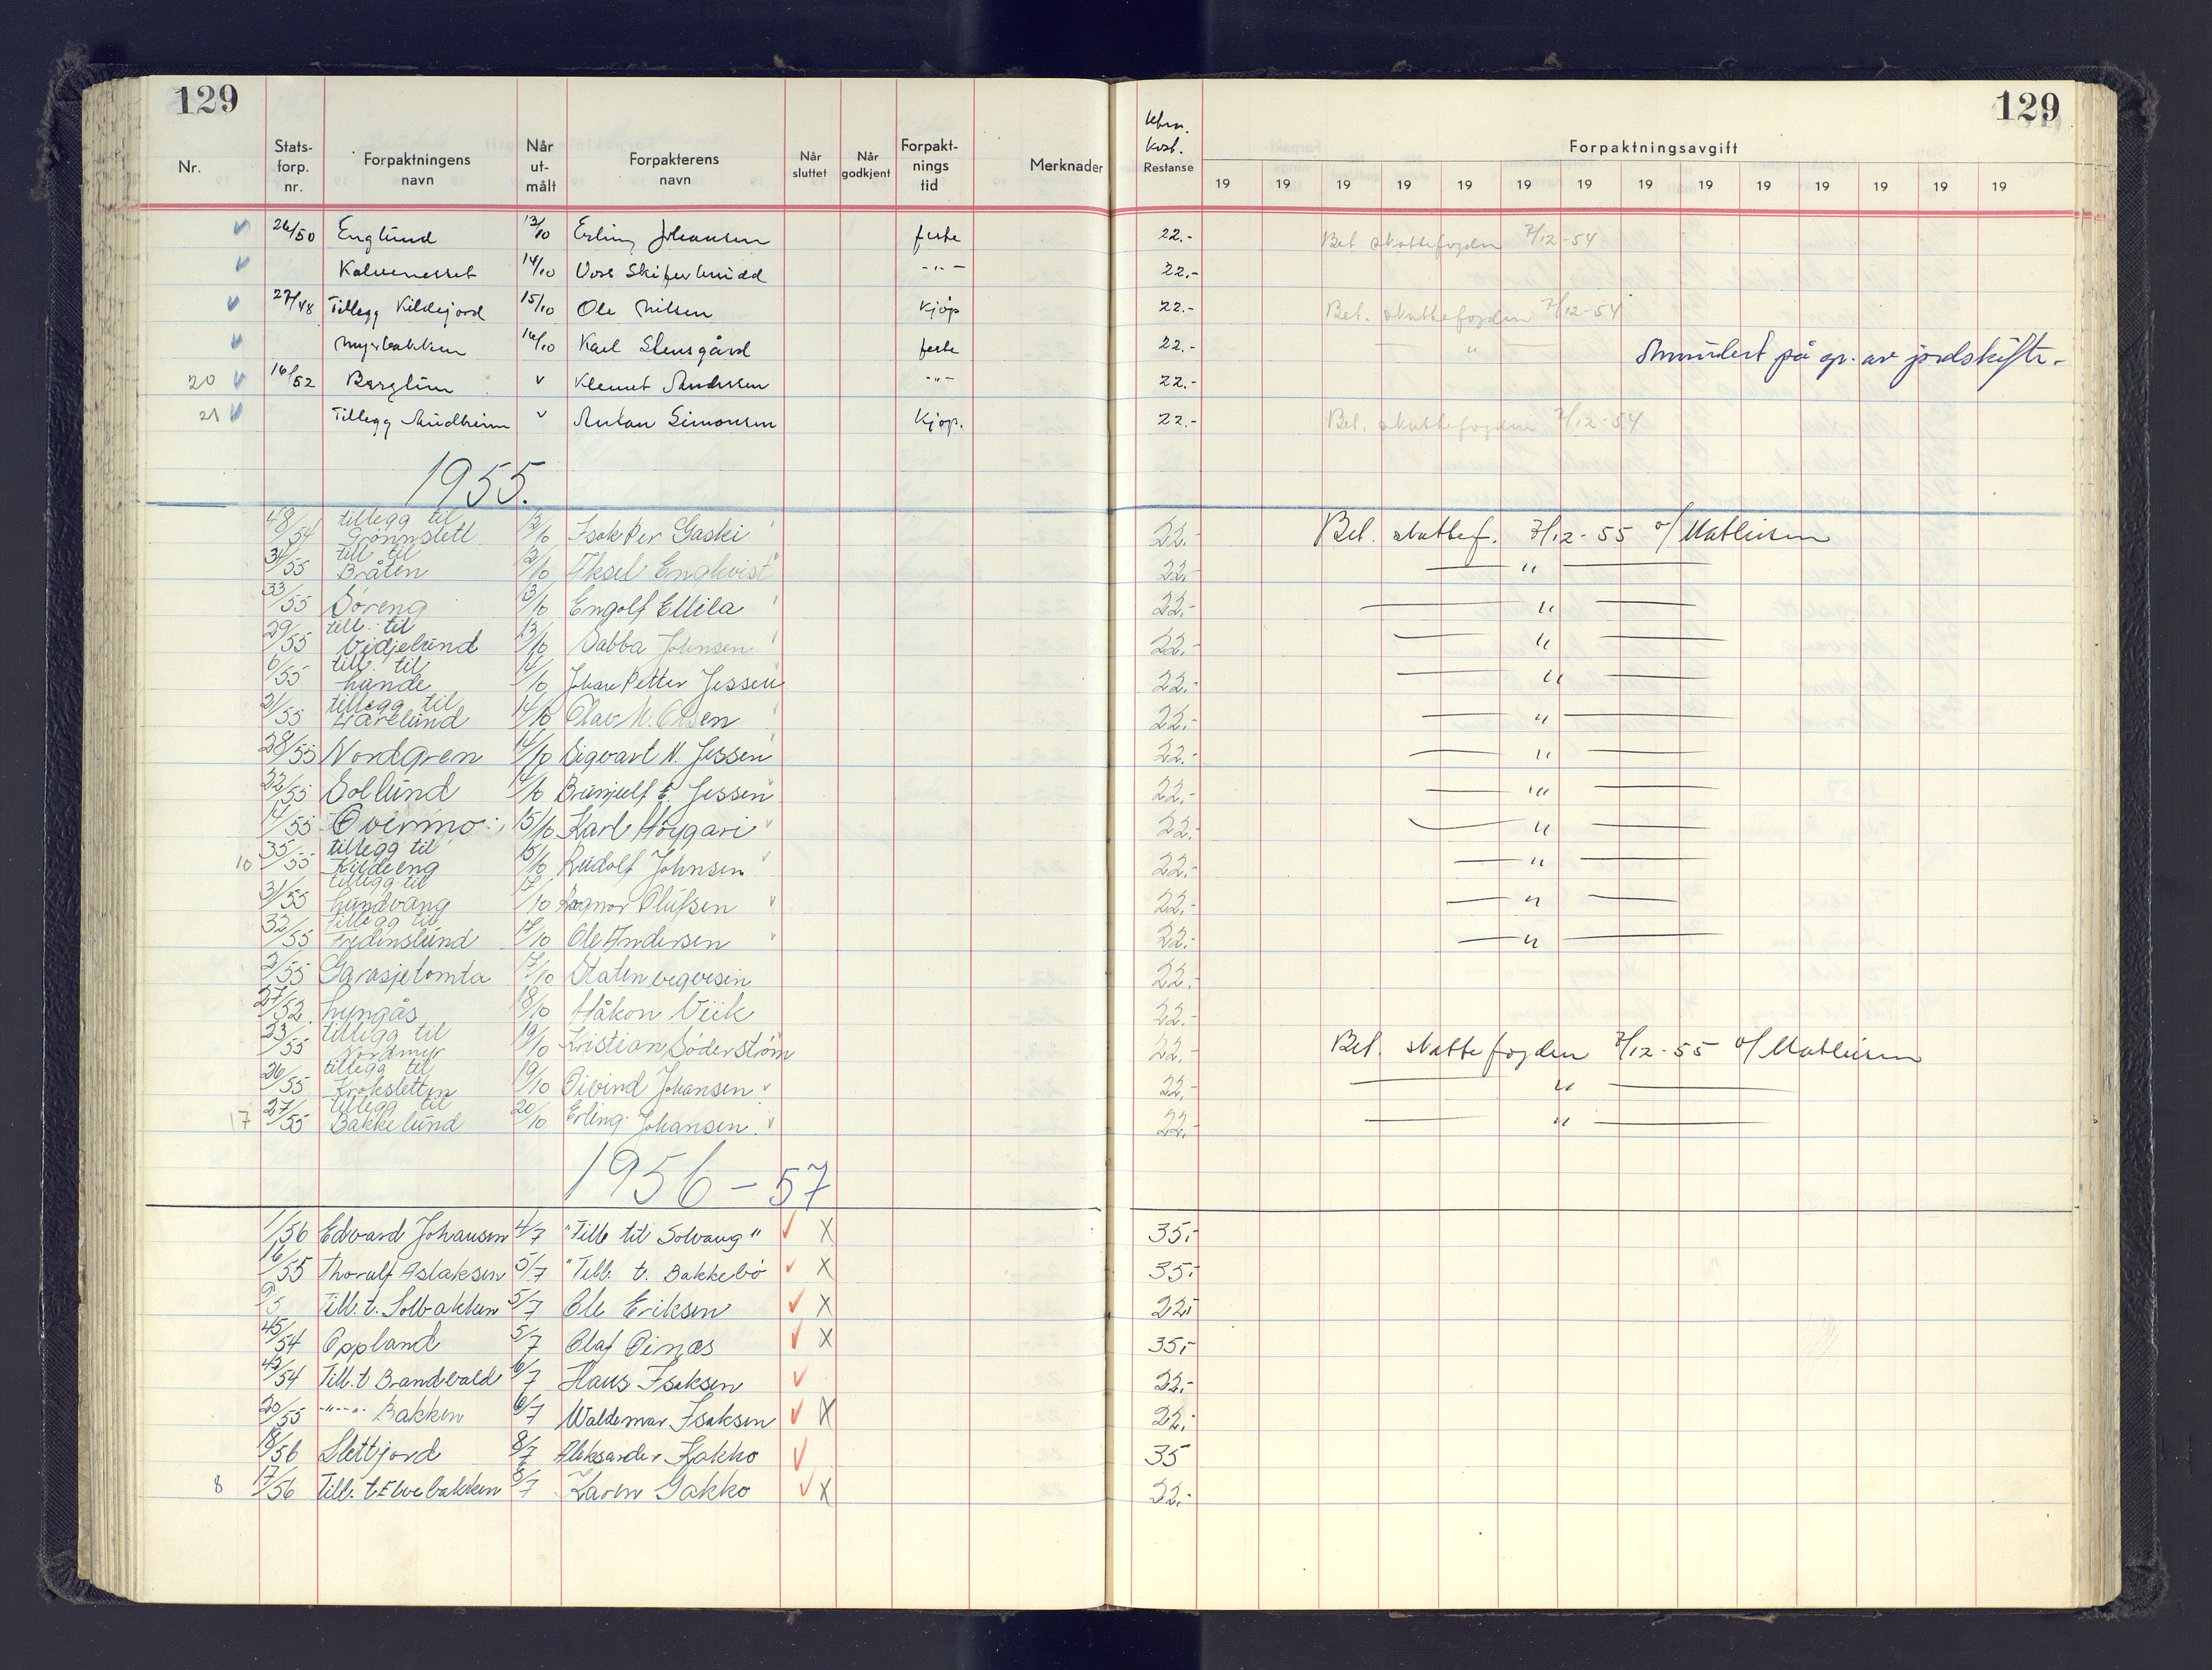 129
129
Nr. Stats-forp. nr. Forpaktningens navn Når ut-målt Forpakterens navn Når sluttet Når godkjent Forpakt-nings tid Merknader Restanse Forpaktningsavgift
19 19 19 19 19 19 19 19 19 19 19 19 19 19
26/50 Englund 13/10 Erling Johansen feste 22.- Bet skattefogden 7/12-54
14/10 Voss Skiferbrudd -"- 22.-
27/48 Tillegg Kildejord 15/10 Ole Nilsen Kjøp 22.- Bet. skattefogden 7/12-54
Myrbakken 16/10 Karl Stensgård feste 22.- " på gr. av jordskifte.
20 16/52 Berglim v Klemet Andersen -"- 22.-
21 Tillegg v Anton Simonsen Kjøp. 22.- Bet. skattefogden 7/12-54
1955.
48/54 tillegg til Grønnslett 12/10 Isak Per Gaski 22.- Bet. skattef. 7/12-55 o/Mathisen
34/55 till til Bråten 12/10 Aksel Engkvist 22.- "
33/55 Søreng 13/10 Engolf Ellila 22.- "
29/55 till. til Vidjelund 13/10 Sabba Johnsen 22.- "
6/55 till. til Lunde 14/10 Johan Petter Jessen 22.- "
21/55 tillegg til 14/10 Olav M. Olsen 22.- "
28/55 Nordgren 14/10 Sigvart N. Jessen 22.- "
22/55 Sollund 14/10 Brunjulf E. Jessen 22.- "
14/55 Øvermo 15/10 Karl Høygari 22.- "
10 35/55 tillegg til Kildeeng 15/10 Rudolf Johnsen 22.- "
31/55 tillegg til Lundvang 17/10 Ragnar Olufsen 22.- "
32/55 tillegg til Fredenslund 17/10 Ole Andersen 22.- "
2/55 Garasjetomta 17/10 Staten vegvesen 22.-
27/52 Lyngås 18/10 Håkon Viik 22.-
23/55 tillegg til Nordmyr 19/10 Kristian Søderstrøm 22.- Bet. skattefogden 7/12-55 o/Mathisen
26/55 tillegg til Kroksletten 19/10 Øivind Johansen 22.- "
17 27/55 tillegg til Bakkelund 20/10 Erling Johansen 22.- "
1956-57
1/56 Edvard Johansen 4/7 "Till til Solvang" X 35.-
16/55 Thoralf Aslaksen 5/7 "Till. t. Bakkebø X 35.-
Till. t. Solbakken 5/7 Ole Eriksen X 22.-
45/54 Oppland 5/7 Olaf Oinas X 35.-
43/54 Till. t Brandvold 6/7 Hans Isaksen 22.-
20/55 -"--"- Bakken 6/7 Waldemar Isaksen X 22.-
18/56 Slettjord 8/7 Aleksander Kakko 35
8 17/56 Till. t Elvebakken 8/7 Karen Gakko X 22.-